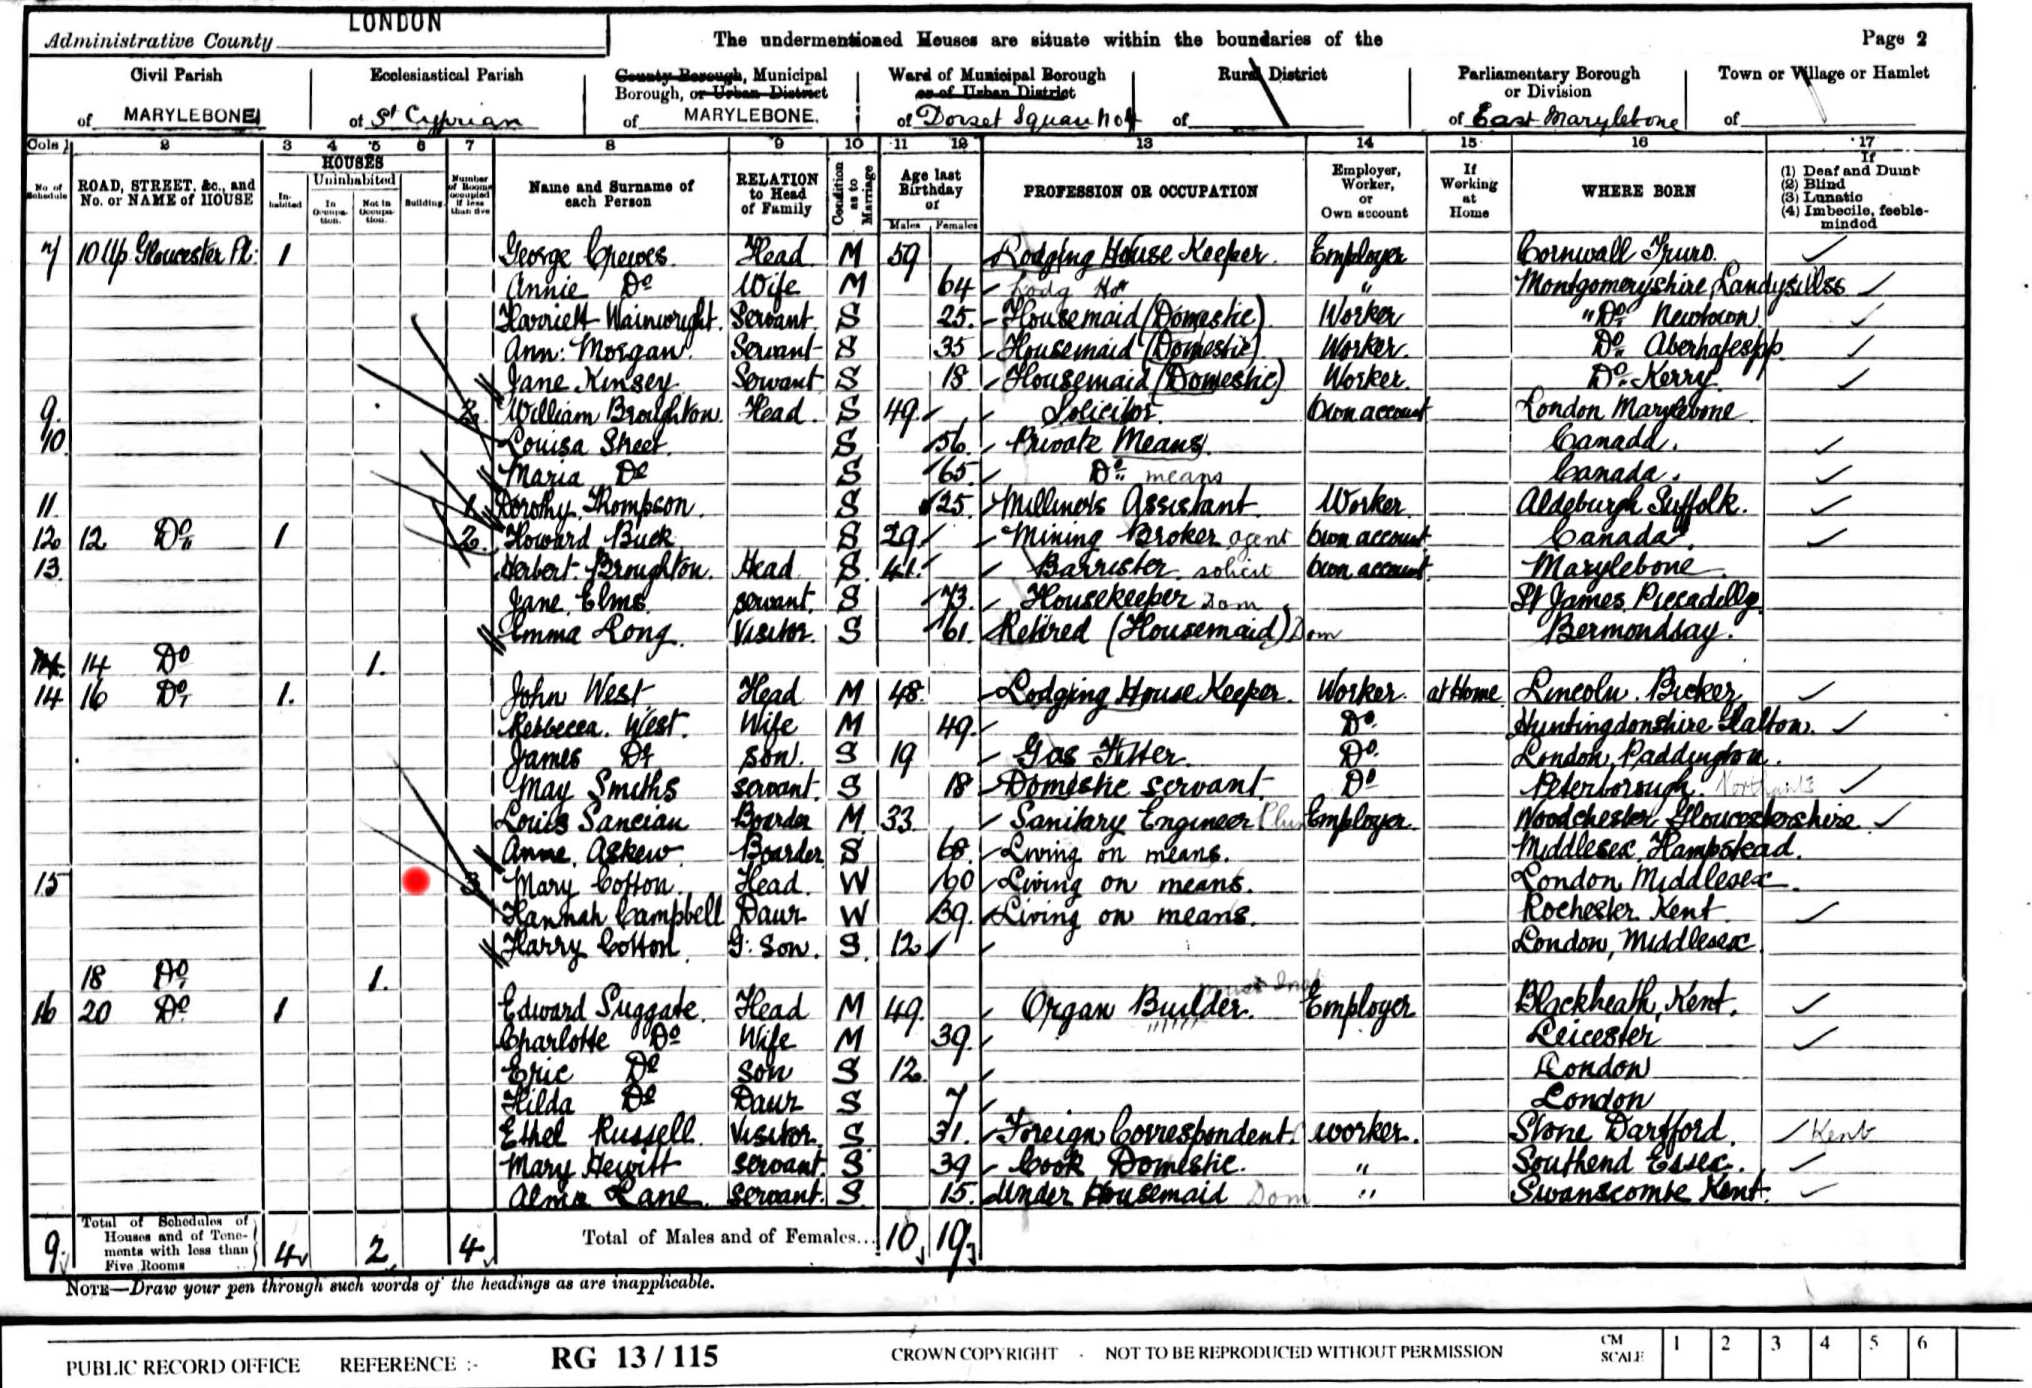 LONDON
Administrative County
The undermentioned Houses are situate within the boundaries of the
Page 2
Civil Parish
Ecclesiastical Parish
County Borough, Municipal Borough, or Urban District
Ward of Municipal Borough or of Urban District
Rural District
Parliamentary Borough or Division
Town or Village or Hamlet
of MARYLEBONE
of St Cyprian
of MARYLEBONE.
of Dorset Square No 4
of
of East Marylebone
of
Cols 1 2 3 4 5 6 7 8 9 10 11 12 13 14 15 16 17
No. of Schedule
ROAD, STREET, &c., and No. or NAME of HOUSE
HOUSES
Inhabited
Uninhabited
In Occupation.
Not in Occupation.
Building.
Number of Rooms occupied if less than five
Name and Surname of each Person
RELATION to Head of Family
Condition as to Marriage
Age last Birthday of
Males Females
PROFESSION OR OCCUPATION
Employer, Worker, or Own account
If Working at Home
WHERE BORN
If
(1) Deaf and Dumb
(2) Blind
(3) Lunatic
(4) Imbecile, feeble-minded
7 10 Up Gloucester Pl: 1 George Crewes Head M 59 Lodging House Keeper. Employer Cornwall Truro.
Annie Do Wife M 64 Lodg Ho " Montgomeryshire
Harriett Wainwright. Servant. S 25. Housemaid (Domestic) Worker "Do Newtown
Ann: Morgan. Servant S 35 Housemaid (Domestic) Worker. Do Aberhafespp.
Jane Kinsey Servant S 18 Housemaid (Domestic) Worker. Do Kerry.
9. 2. William Broughton. Head. S 49. Solicitor Own account London Marylebone
10 Louisa Street. S 56 Private Means. Canada.
Maria Do S 65. Do means Canada.
11. 1. Dorothy Thompson. S 25. Milliner's Assistant Worker. Aldeburgh Suffolk.
12 12 Do 1 2. Howard Buck S 29. Mining Broker agent Own account Canada.
13 Herbert Broughton. Head S 41. Barrister. solicit Own account Marylebone
Jane Elms. servant. S 73. Housekeeper Dom St James Piccadilly
Emma Long. Visitor. S 61. Retired (Housemaid) Dom Bermondsay.
14 Do 1.
14 16 Do 1. John West Head M 48. Lodging House Keeper. Worker. at Home Lincoln. Bicker
Rebbecca. West. Wife M 49. Do. Huntingdonshire
James Do son. S 19 Gas Fitter. Do. London, Paddington.
May Smiths servant. S 18 Domestic servant. Do Peterborough. Northants
Louis Sanciau Boarder M. 33. Sanitary Engineer Plum Employer. Woodchester Gloucestershire
Anne. Askew. Boarder S 68. Living on means. Middlesex Hampstead.
15 3. Mary Cotton. Head. W 60 Living on means. London Middlesex.
Hannah Campbell Daur W 39. Living on means. Rochester Kent.
Harry Cotton. G: son. S. 12 London, Middlesex
18 Do 1.
16 20 Do 1 Edward Suggate. Head M 49. Organ Builder. Employer Blackheath, Kent.
Charlotte Do Wife M 39. Leicester
Eric Do son S 12. London
Hilda Do Daur S 7 London
Ethel Russell. Visitor. S 31. Foreign Correspondent. worker. Stone Dartford. Kent
Mary Hewitt servant. S 39 Cook Domestic. " Southend Essex.
Alma Lane. servant. S. 15. Under Housemaid Dom " Swanscombe Kent.
9. Total of Schedules of Houses and of Tenements with less than Five Rooms 4 2 4 Total of Males and of Females... 10 19
NOTE—Draw your pen through such words of the headings as are inapplicable.
PUBLIC RECORD OFFICE REFERENCE :- RG 13 / 115 CROWN COPYRIGHT - NOT TO BE REPRODUCED WITHOUT PERMISSION CM SCALE 1 2 3 4 5 6